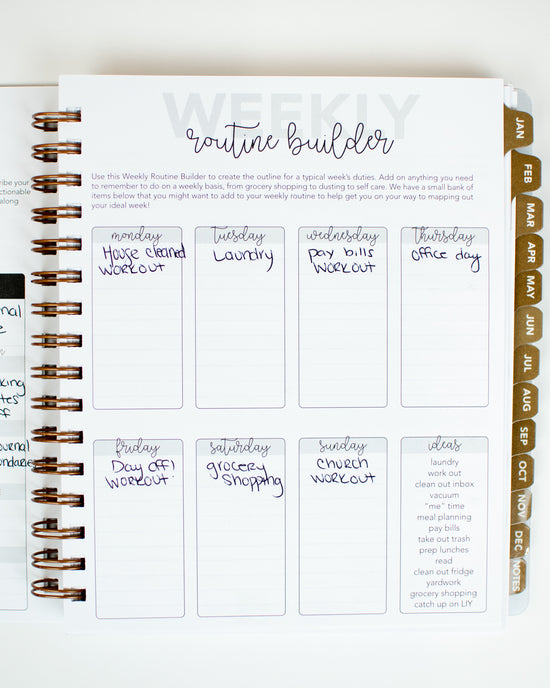 WEEKLY
routine builder
Use this Weekly Routine Builder to create the outline for a typical week's duties. Add on anything you need
to remember to do on a weekly basis, from grocery shopping to dusting to self care. We have a small bank of
items below that you might want to add to your weekly routine to help get you on your way to mapping out
your ideal week!
monday
House cleaned
WORKOUT
tuesday
Laundry
wednesday
pay bills
WORKOUT
thursday
office day
friday
Day off!
WORKOUT
saturday
grocery
shopping
sunday
CHURCH
WORKOUT
ideas
laundry
work out
clean out inbox
vacuum
"me" time
meal planning
pay bills
take out trash
prep lunches
read
clean out fridge
yardwork
grocery shopping
catch up on LIY
JAN
FEB
MAR
APR
MAY
JUN
JUL
AUG
SEP
OCT
NOV
DEC
NOTES